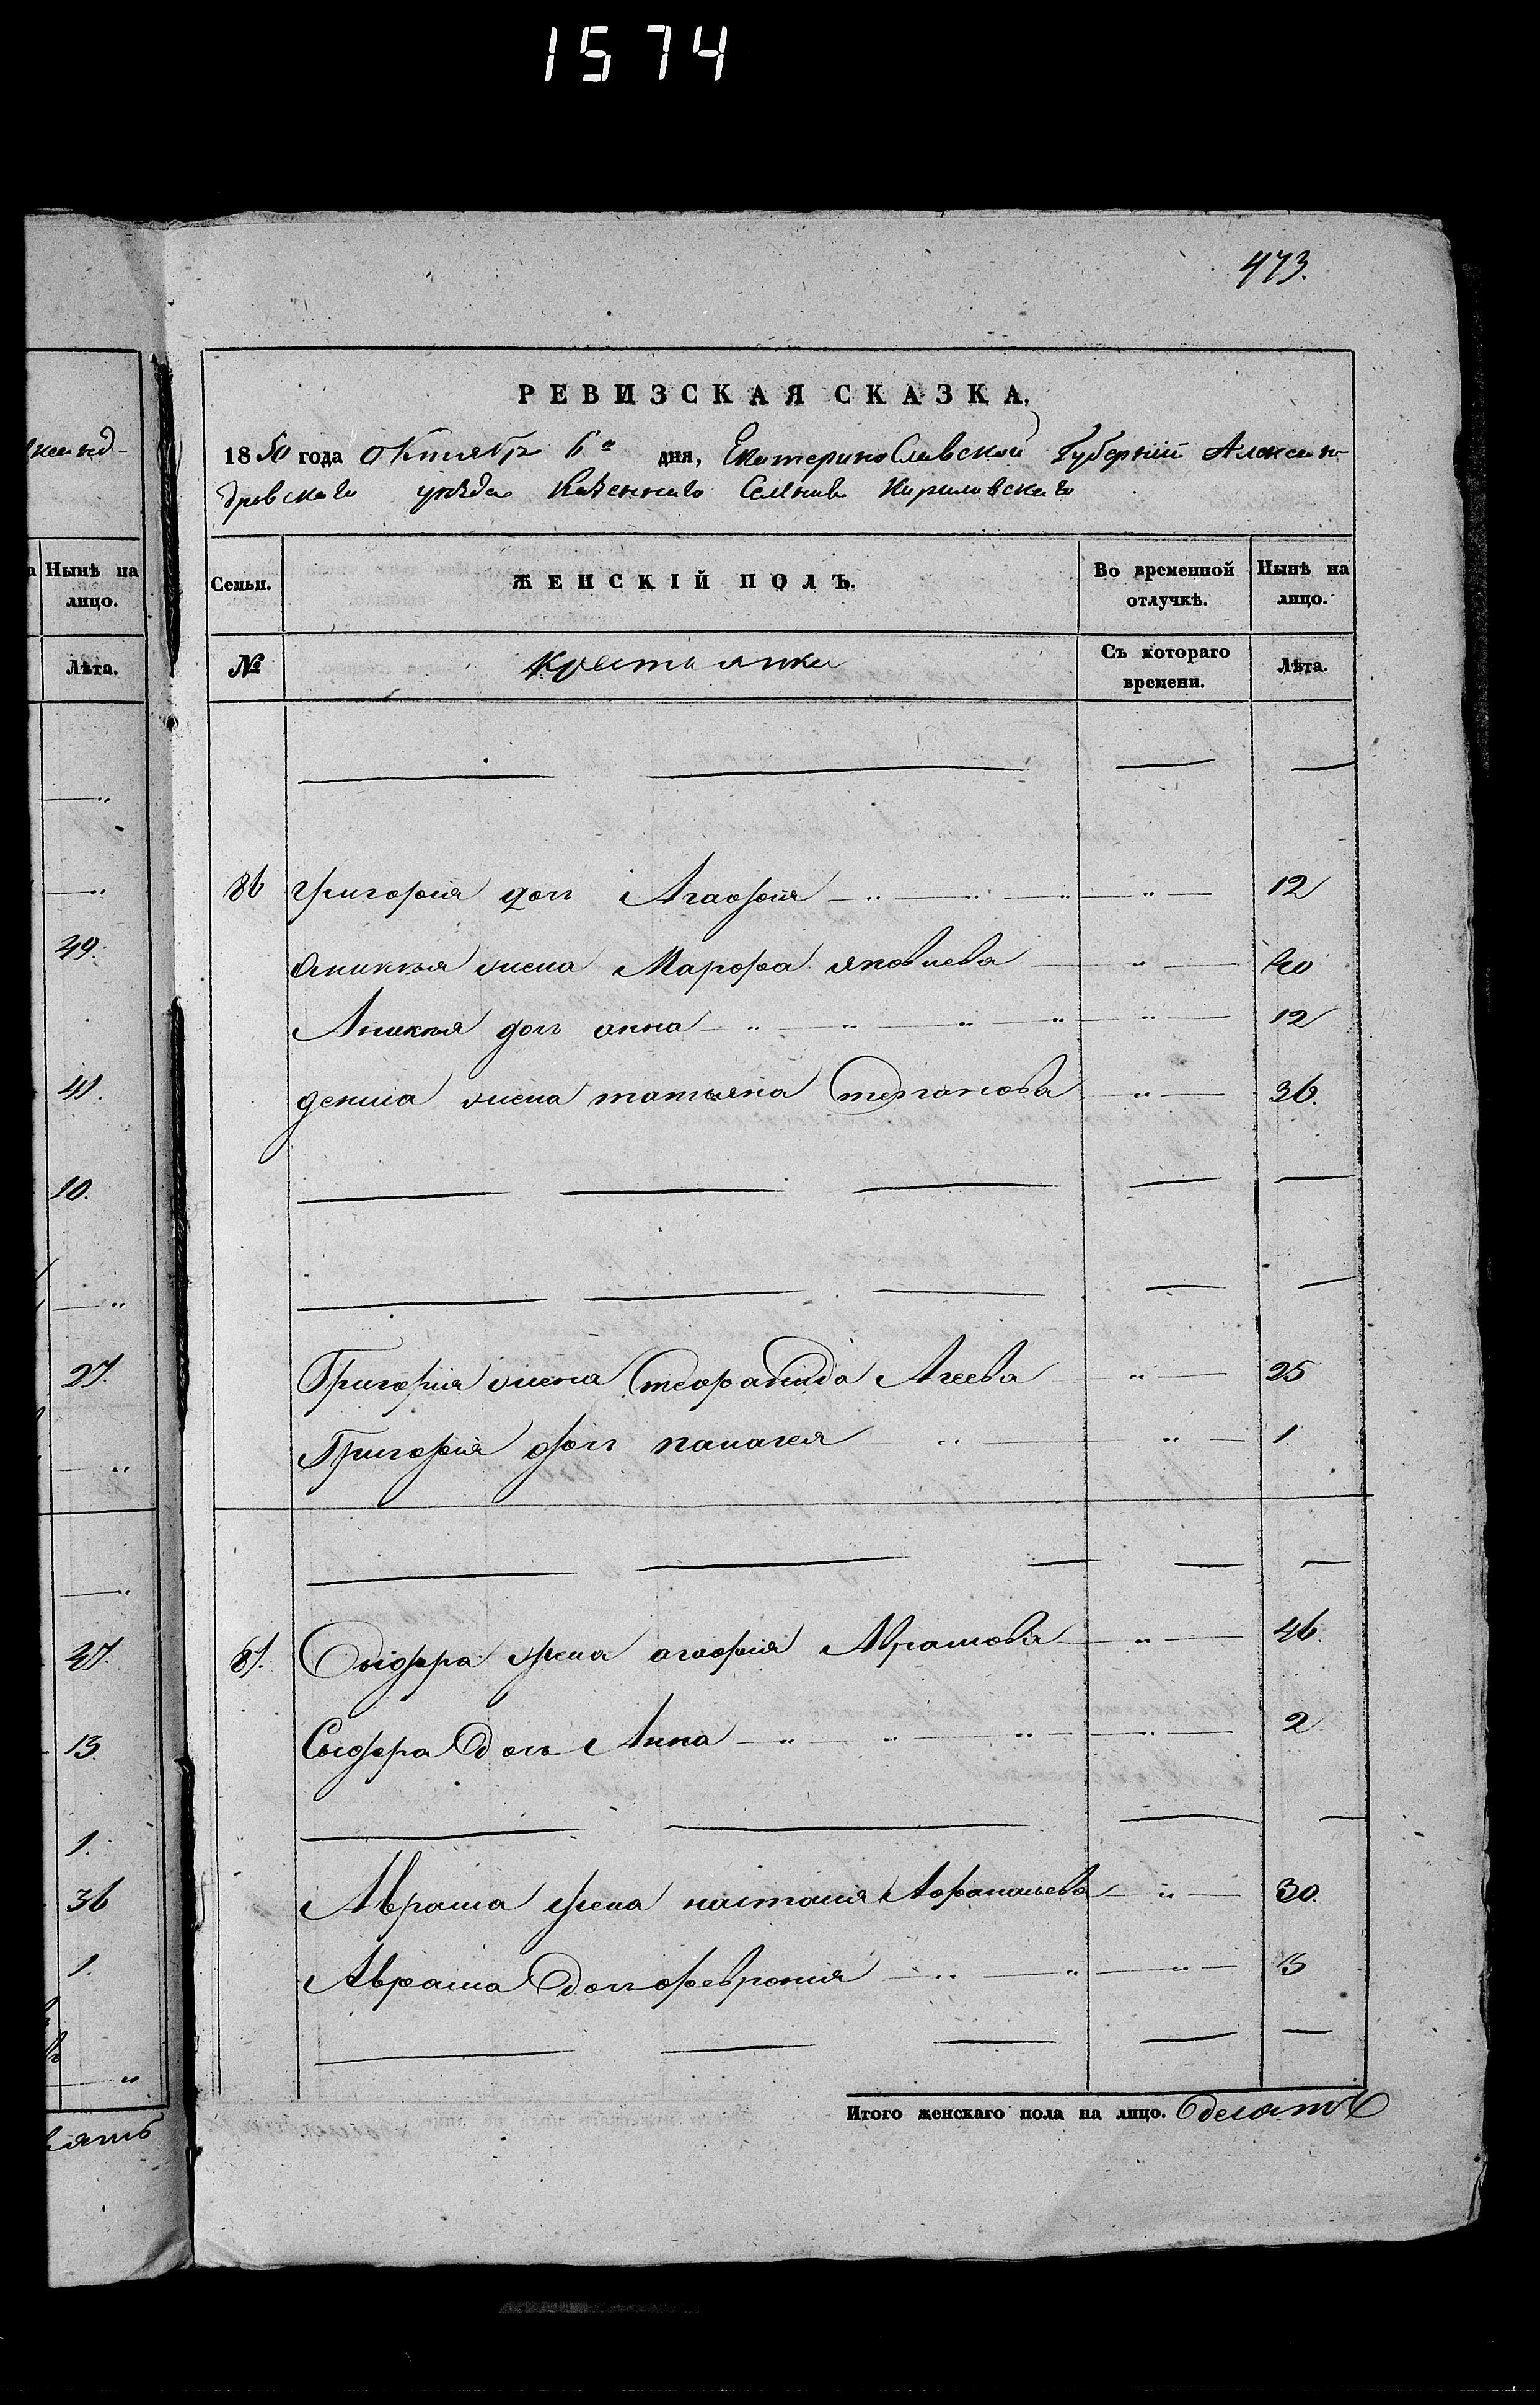 1574
473.
РЕВИЗСКАЯ СКАЗКА.
1850 года Октября 6го дня, Екатеринославской Губерніи Алексан-
дровскаго уѣзда Казеннаго Селенія Кириловскаго
Семьи. ЖЕНСКІЙ ПОЛЪ. Во временной отлучкѣ. Нынѣ на лицо.
№ Крестьянки Съ котораго времени. Лѣта.
86 Григорія доч Агафія " 12
Аникѣя жена Марфа яковлева " 40
Аникѣя доч анна " 12
дениса жена татьяна Степанова " 36.
Григорія жена Агеева " 25
Григорія доч палагея " 1.
87. Сидора жена агафія Абрамова " 46.
Сидора Доч Анна " 2
Абрама жена настасія Афанасьева " 30.
Абрама Доч февронія " 13
Итого женскаго пола на лицо. Десять
ксанд-
Нынѣ на
лицо.
Лѣта.
"
"
49.
41.
10.
"
27.
"
"
47.
13.
1.
36
1.
"
вять